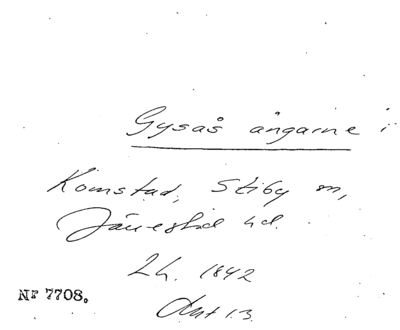 Gysås ängarne i
Komstad, Stiby sn,
Järrestad hd.
Lh. 1842
Akt 13.
Nr 7708.